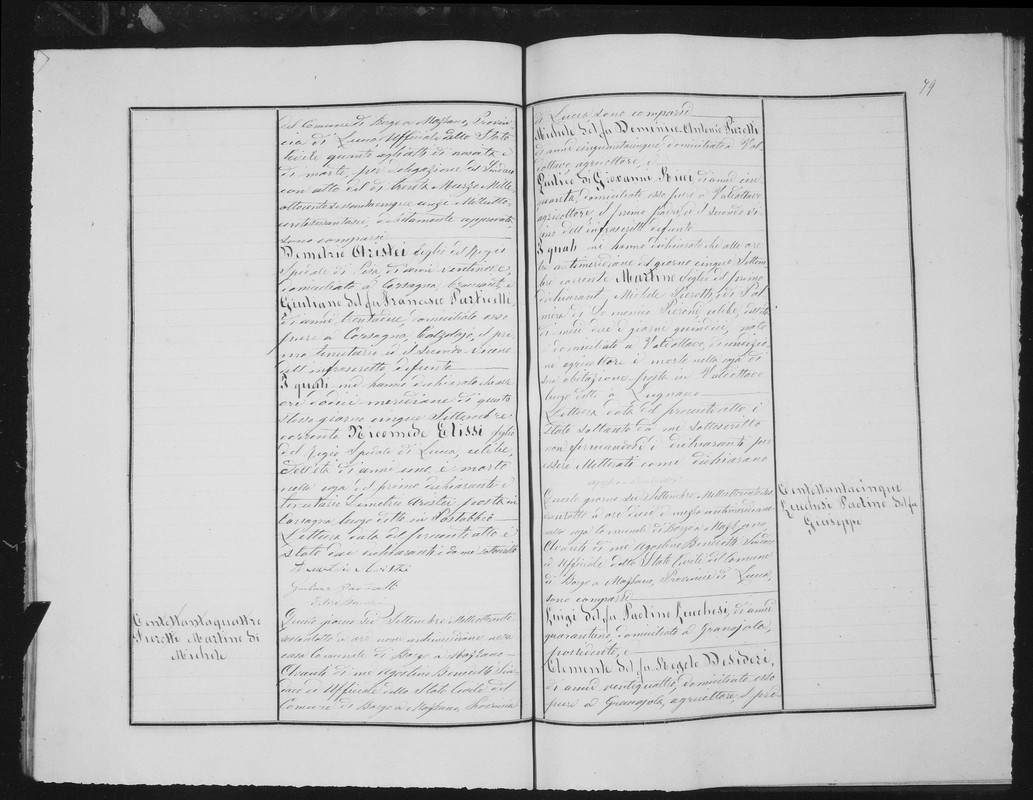 del Comune di Borgo a Mozzano, Provin
cia di Lucca, Uffiziale dello Stato
Civile quanto agli atti di nascita e
di morte, per delegazione del Sindaco
con atto del dì trenta Marzo Mille
ottocento sessantacinque
debitamente approvata,
sono comparsi
Demetrio Aristei figlio del Regio
Spedale di Pisa, di anni ventinove,
domiciliato a Corsagna, e
Giuliano del fu Francesco Particelli,
di anni trentatre, domiciliato esso
pure a Corsagna, Calzolajo, il pri
mo tenutario ed il secondo vicino
dell'infrascritto defunto
I quali mi hanno dichiarato che alle
ore dodici meridiane di questo
stesso giorno cinque Settembre
corrente Nicomede Elissi figlio
del Regio Spedale di Lucca, celibe,
dell'età di anni uno, è morto
nella casa del primo dichiarante e
tenutario Demetrio Aristei, posta in
Corsagna luogo detto in
Lettura data del presente atto è
stato dai dichiaranti e da me sottoscritto
Demetrio Aristei
Giuliano Particelli
Centottantaquattro
Pieretti Martino di
Michele
Questo giorno sei Settembre Milleottocento
sessantotto a ore nove antimeridiane nella
casa Comunale di Borgo a Mozzano
Avanti di me Agostino Benedetti Sin
daco ed Uffiziale dello Stato Civile del
Comune di Borgo a Mozzano, Provincia
79
di Lucca sono comparsi
Michele del fu Domenico Antonio Pieretti
di anni cinquantacinque, domiciliato a Val
dottavo, agricoltore, e
Giudico di Giovanni Ricci, di anni cin
quanta, domiciliato esso pure a Valdottavo
agricoltore, il primo padre, ed il secondo vi
cino dell'infrascritto defunto
I quali mi hanno dichiarato che alle ore
tre antimeridiane del giorno cinque Settem
bre corrente Martino figlio del primo
dichiarante, Michele Pieretti, e di Pal
mira di Domenico Pierone, celibe, dell'età
di mesi dieci e giorni quindici, nato
e domiciliato a Valdottavo,
agricoltore è morto nella casa di
sua abitazione posta in Valdottavo
luogo detto a Lugnano
Lettura data del presente atto è
stato soltanto da me sottoscritto
non firmandosi i dichiaranti per
essere illetterati come dichiarano
Centottantacinque
Lucchesi Paolino del fu
Giuseppe
Questo giorno sei Settembre Milleottocento ses
santotto a ore dieci e mezzo antimeridiane
nella casa Comunale di Borgo a Mozzano,
Avanti di me Agostino Benedetti Sindaco
ed Uffiziale dello Stato Civile del Comune
di Borgo a Mozzano, Provincia di Lucca,
sono comparsi
Luigi del fu Paolino Lucchesi, di anni
quarantuno, domiciliato a Granajola,
possidente, e
Clemente del fu Angelo Desideri,
di anni ventiquattro, domiciliato esso
pure a Granajola, agricoltore, il pri